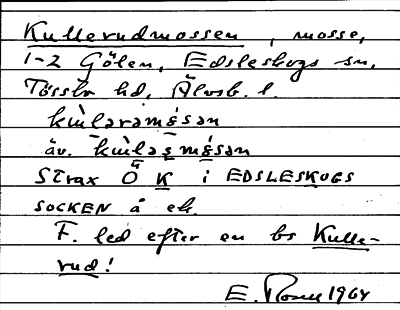 Kullerudmossen, mosse,
1-2 Gölen, Edsleskogs sn,
Tössbo hd, Älvsb. l.
kɯlərəmósən
äv. kɯləsmósən
Strax Ö K i EDSLESKOGS
SOCKEN å ek.
F. led efter en bs Kulle-
rud!
E. Rosell 1964